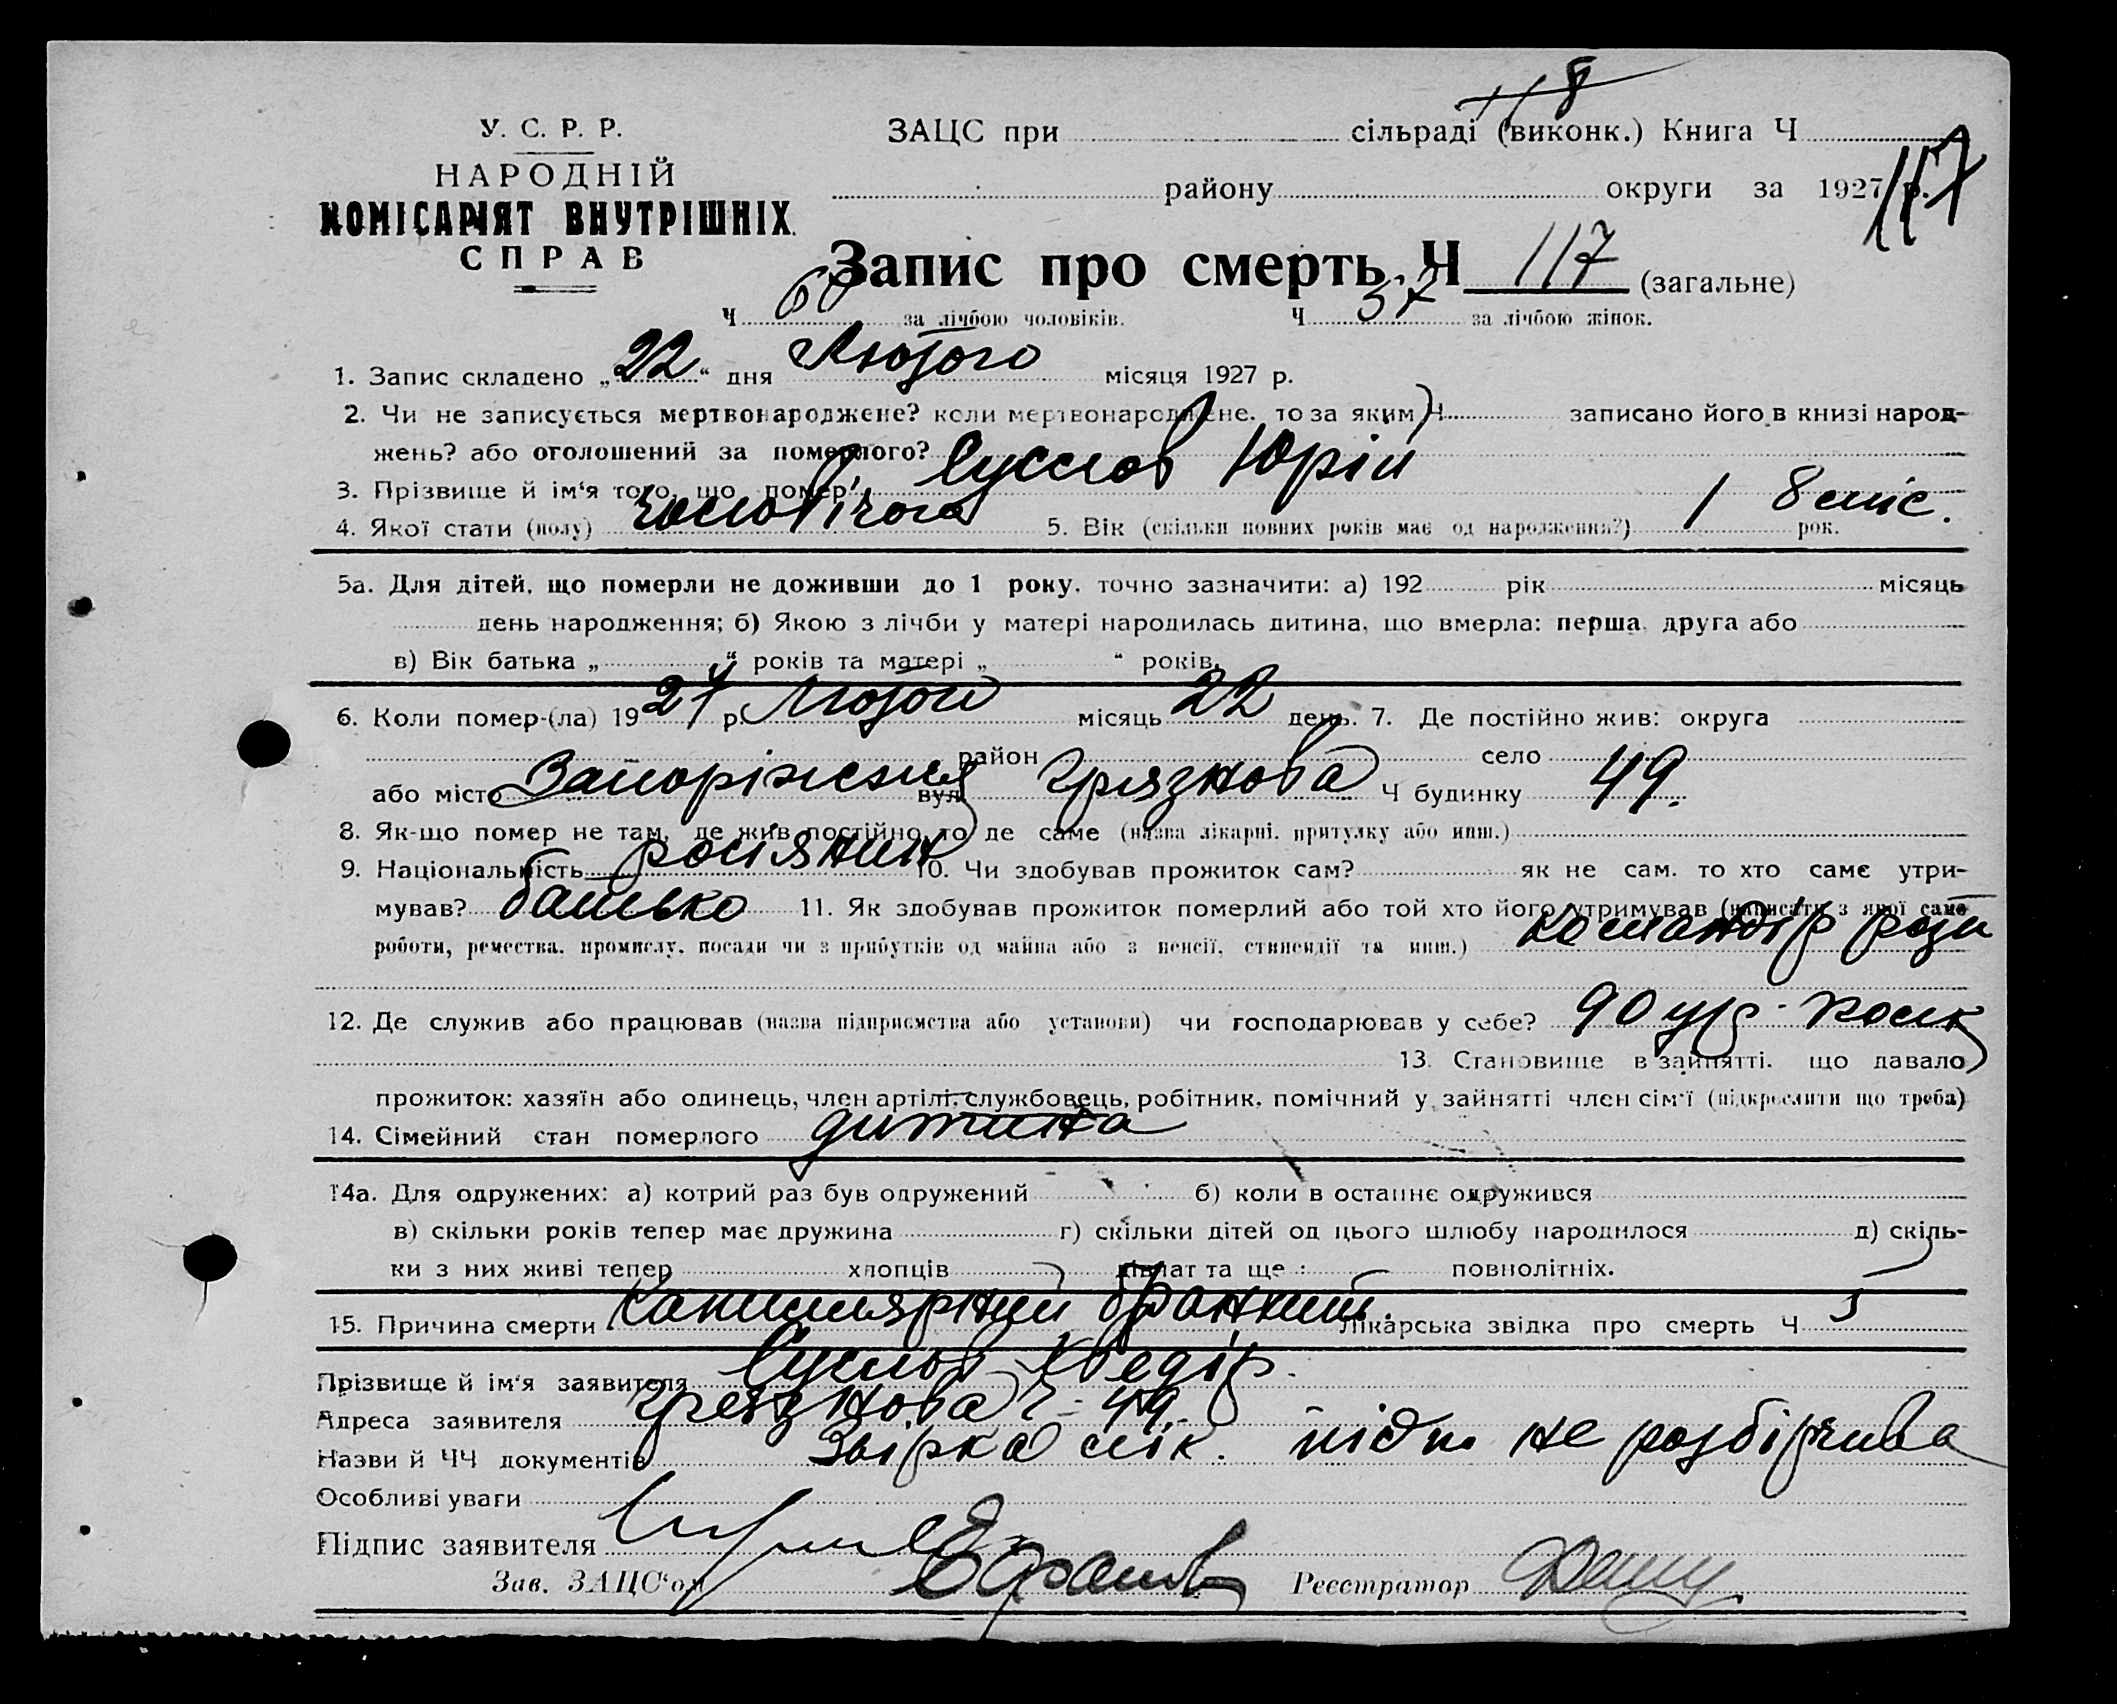 118
У. С. Р. Р.
ЗАЦС при сільраді (виконк.) Книга Ч
117
НАРОДНІЙ
району округи за 1927 р.
КОМІСАРІЯТ ВНУТРІШНІХ
СПРАВ
Запис про смерть, Ч 117 (загальне)
Ч 60 за лічбою чоловіків. Ч 57 за лічбою жінок.
1. Запис складено „22“ дня Лютого місяця 1927 р.
2. Чи не записується мертвонароджене? коли мертвонароджене, то за яким Ч записано його в книзі народ-
жень? або оголошений за померлого?
3. Прізвище й ім'я того, що помер Суслов Юрій
4. Якої стати (полу) чоловічої 5. Вік (скільки повних років має од народження?) 1 8 міс. рок.
5а. Для дітей, що померли не доживши до 1 року, точно зазначити: а) 192 рік місяць
день народження; б) Якою з лічби у матері народилась дитина, що вмерла: перша, друга або
в) Вік батька „ “ років та матері „ “ років.
6. Коли помер-(ла) 1927 р. Лютого місяць 22 день. 7. Де постійно жив: округа
район село
або місто Запоріжжя вул. Грязнова Ч будинку 49.
8. Як-що помер не там, де жив постійно, то де саме (назва лікарні, притулку або инш.)
9. Національність росіянин 10. Чи здобував прожиток сам? як не сам, то хто саме утри-
мував? батько 11. Як здобував прожиток померлий або той хто його утримував (написати з якої саме
роботи, ремества, промислу, посади чи з прибутків од майна або з пенсії, стипендії та инш.) командір роти
12. Де служив або працював (назва підприємства або установи) чи господарював у себе? 90 полк
13. Становище в зайнятті, що давало
прожиток: хазяїн або одинець, член артілі, службовець, робітник, помічний у зайнятті член сім'ї (підкреслити що треба)
14. Сімейний стан померлого дитина
14а. Для одружених: а) котрий раз був одружений б) коли в останнє одружився
в) скільки років тепер має дружина г) скільки дітей од цього шлюбу народилося д) скіль-
ки з них живі тепер хлопців дівчат та ще повнолітніх.
15. Причина смерти Капилярний бронхит. Лікарська звідка про смерть Ч
Прізвище й ім'я заявителя Суслов Хведір.
Адреса заявителя Грязнова ч. 49.
Назви й ЧЧ документів Звірка лік. підп. не розбірчива
Особливі уваги
Підпис заявителя
Зав. ЗАЦС'ом Реєстратор